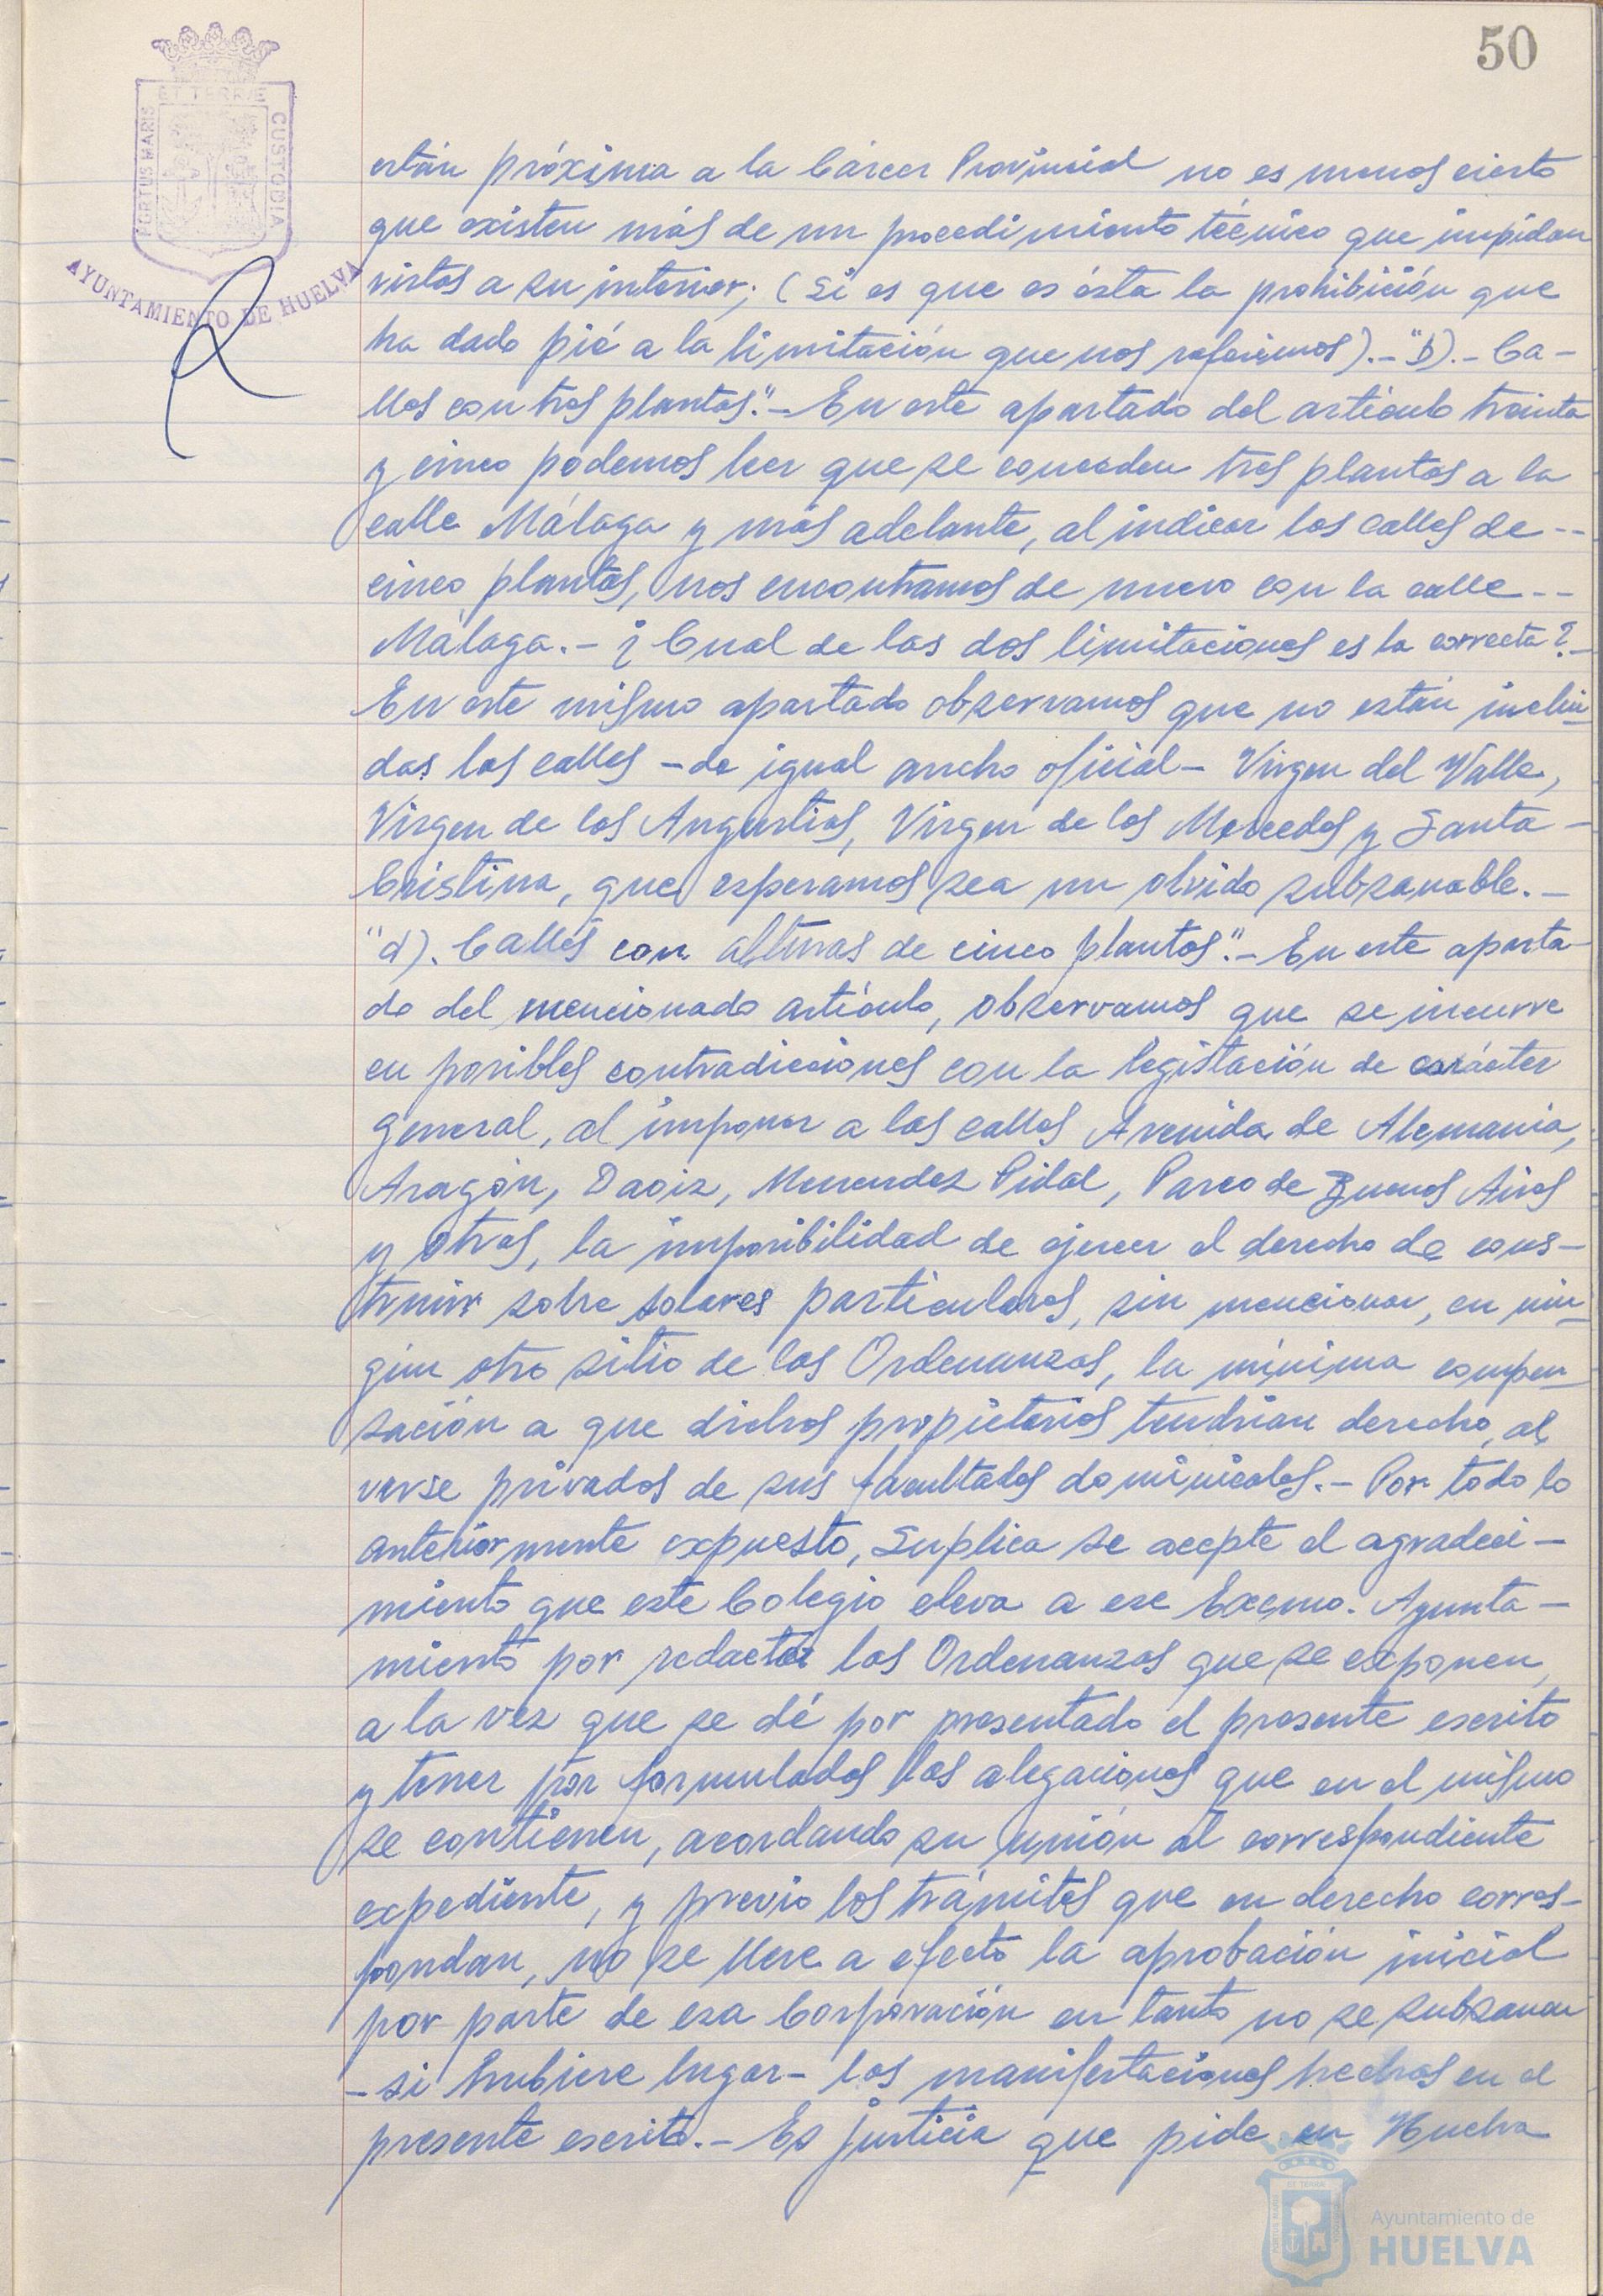 50
ET TERRÆ
PORTUS MARIS
CUSTODIA
AYUNTAMIENTO DE HUELVA
están próxima a la Cárcer Provincial no es menos cierto
que existen más de un procedimiento técnico que impidan
vistas a su interior; (si es que es ésta la prohibición que
ha dado pié a la limitación que nos referimos).-"b).- Ca-
lles con tres plantas".- En este apartado del artículo treinta
y cinco podemos leer que se conceden tres plantas a la
calle Málaga y más adelante, al indicar las calles de --
cinco plantas, nos encontramos de nuevo con la calle --
Málaga.- ¿Cual de las dos limitaciones es la correcta?.-
En este mismo apartado observamos que no están inclui-
das las calles -de igual ancho oficial- Virgen del Valle,
Virgen de las Angustias, Virgen de las Mercedes y Santa -
Cristina, que esperamos sea un olvido subsanable.-
"d). Calles con alturas de cinco plantas".- En este aparta-
do del mencionado artículo, observamos que se incurre
en posibles contradicciones con la legislación de carácter
general, al imponer a las calles Avenida de Alemania,
Aragón, Daoiz, Menendez Pidal, Paseo de Buenos Aires
y otras, la imposibilidad de ejercer el derecho de cons-
truir sobre solares particulares, sin mencionar, en nin-
gún otro sitio de las Ordenanzas, la mínima compen-
sación a que dichos propietarios tendrían derecho, al
verse privados de sus facultades dominicales.- Por todo lo
anteriormente expuesto, Suplica se acepte el agradeci-
miento que este Colegio eleva a ese Excmo. Ayunta-
miento por redactar las Ordenanzas que se exponen,
a la vez que se dé por presentado el presente escrito
y tener por formulados las alegaciones que en el mismo
se contienen, acordando su unión al correspondiente
expediente, y previo los trámites que en derecho corres-
pondan, no se lleve a efecto la aprobación inicial
por parte de esa Corporación en tanto no se subsanan
-si hubiere lugar- las manifestaciones hechas en el
presente escrito.- Es justicia que pide en Huelva
Ayuntamiento de
HUELVA